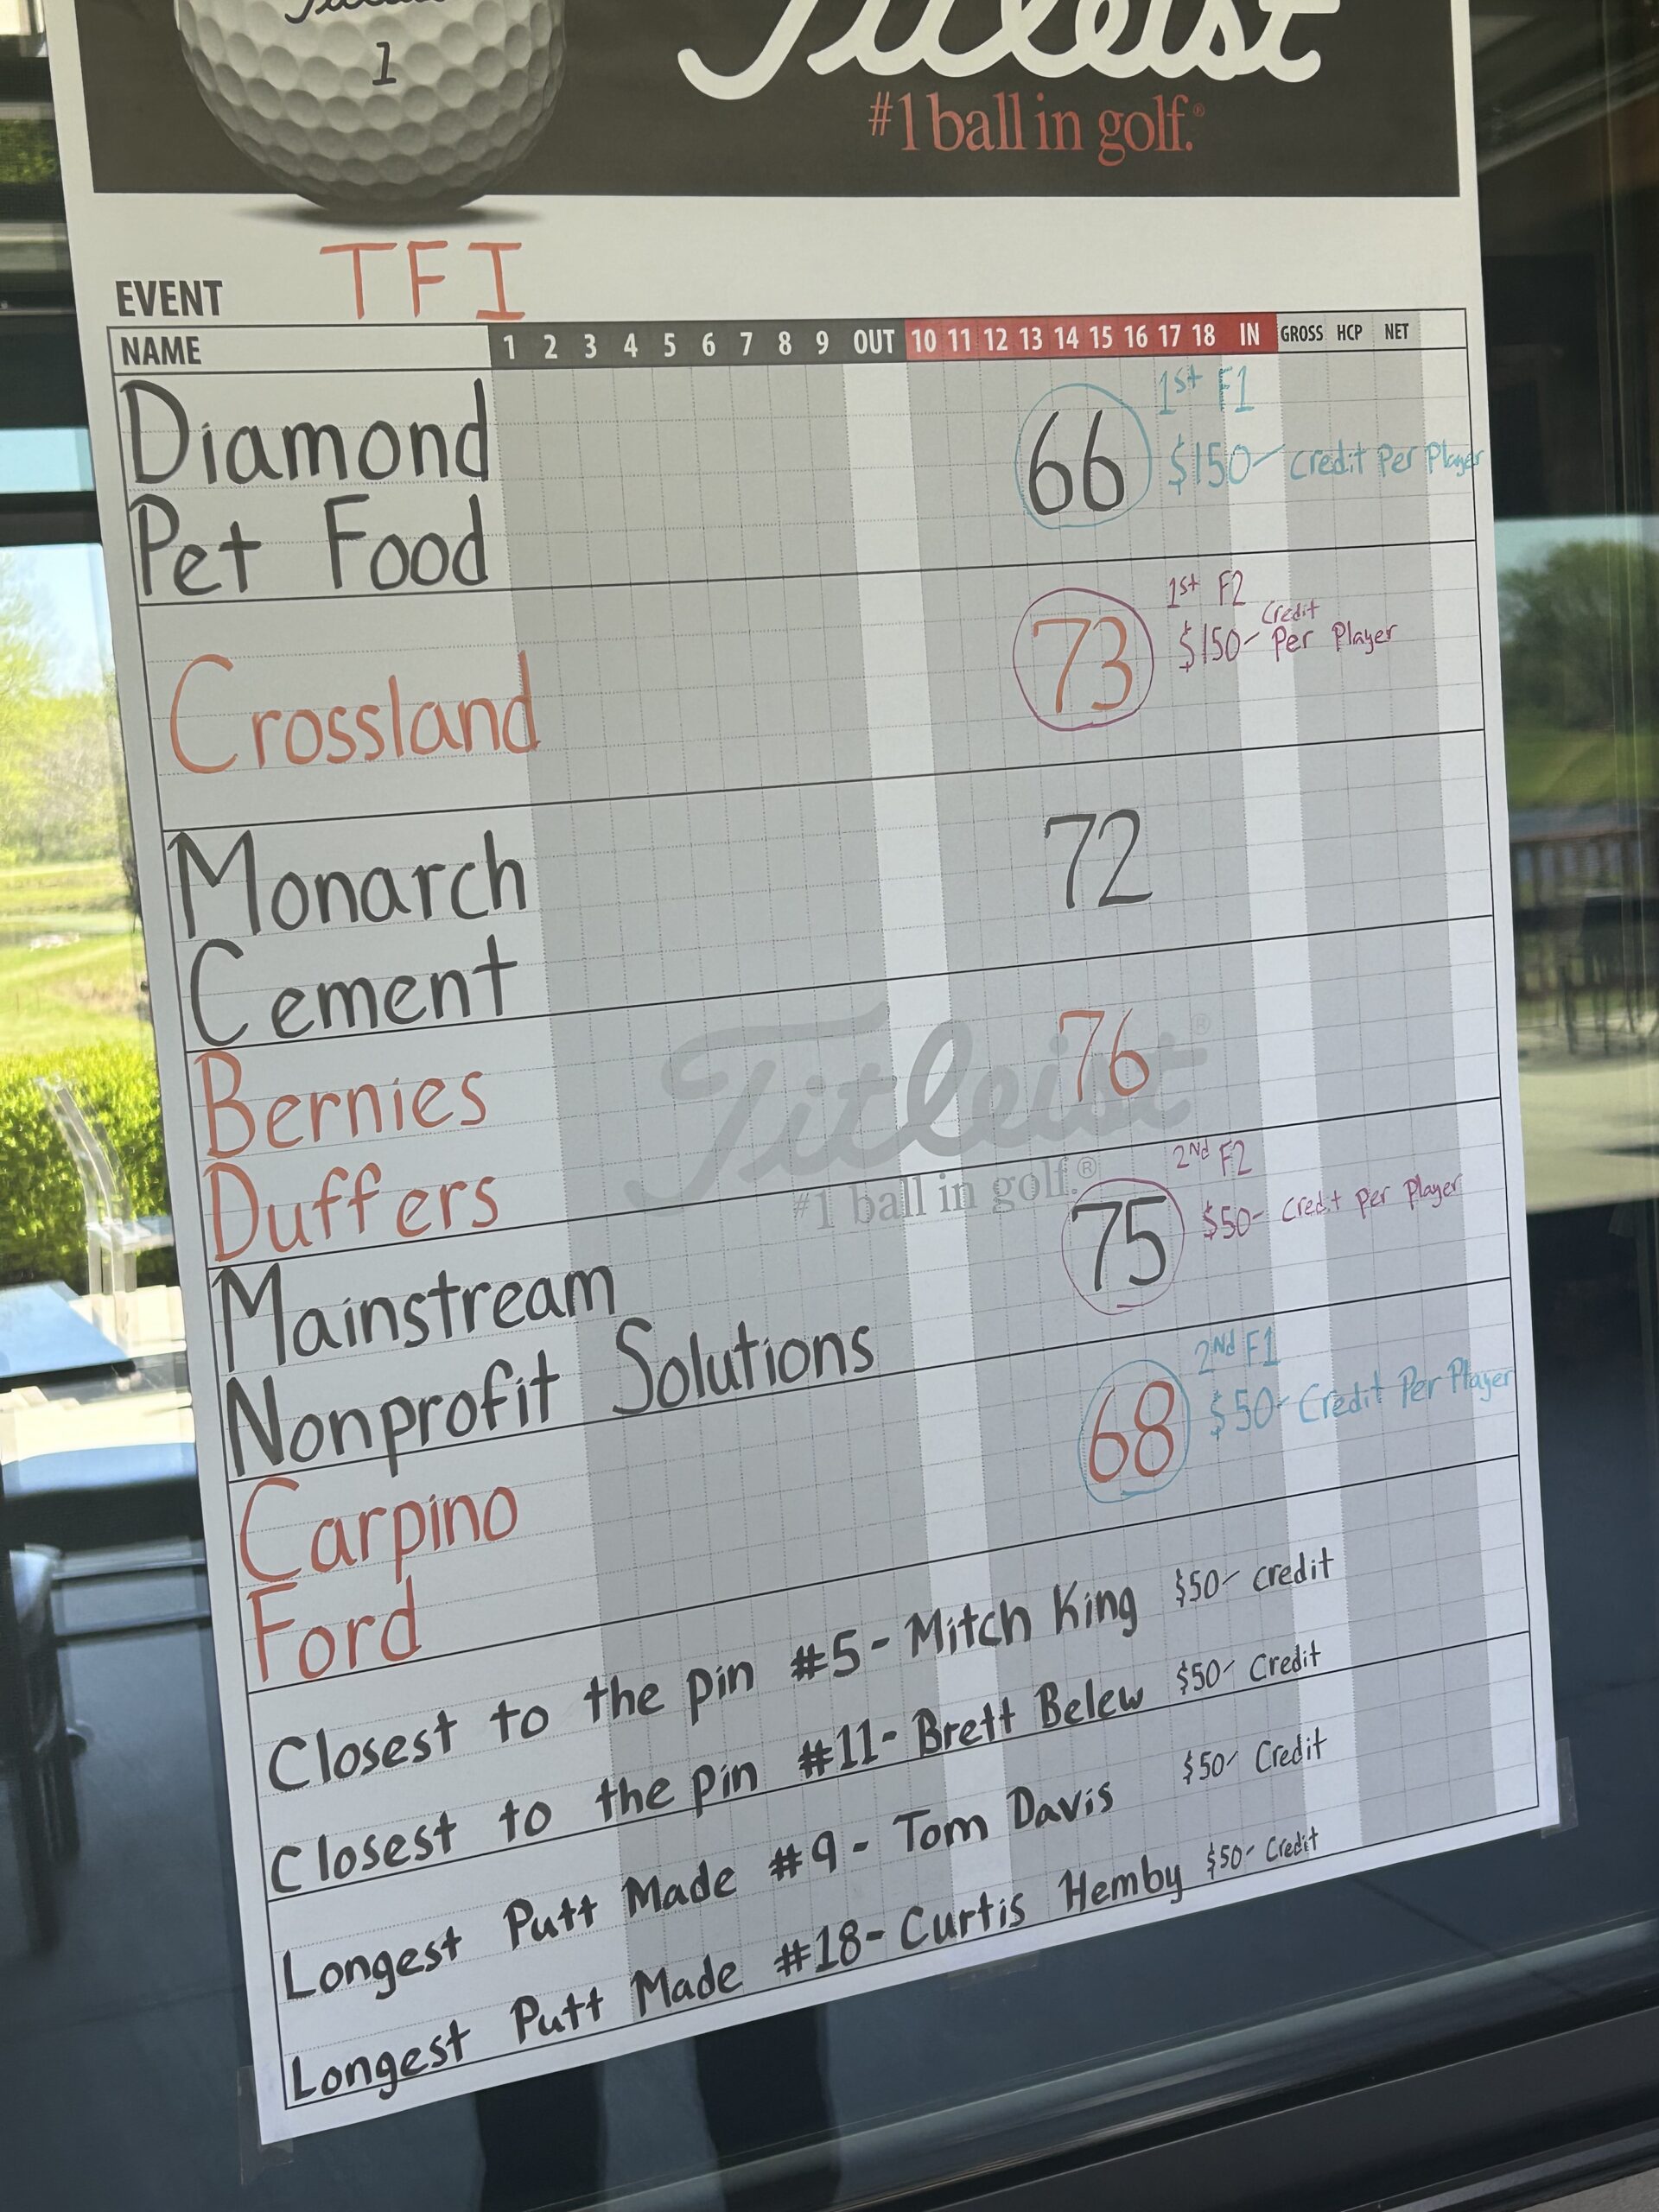 Titleist
1
Titleist
#1 ball in golf.®
EVENT TFI
NAME 1 2 3 4 5 6 7 8 9 OUT 10 11 12 13 14 15 16 17 18 IN GROSS HCP NET
1st F1
Diamond 66 $150- Credit Per Player
Pet Food
1st F2
Credit
Crossland 73 $150- Per Player
Monarch 72
Cement
Bernies 76
Duffers
Titleist®
#1 ball in golf.®
2nd F2
Mainstream 75 $50- Credit Per Player
Nonprofit Solutions
2nd F1
Carpino 68 $50- Credit Per Player
Ford
Closest to the pin #5- Mitch King $50- credit
Closest to the pin #11- Brett Belew $50- Credit
Longest Putt Made #9- Tom Davis $50- Credit
Longest Putt Made #18- Curtis Hemby $50- Credit